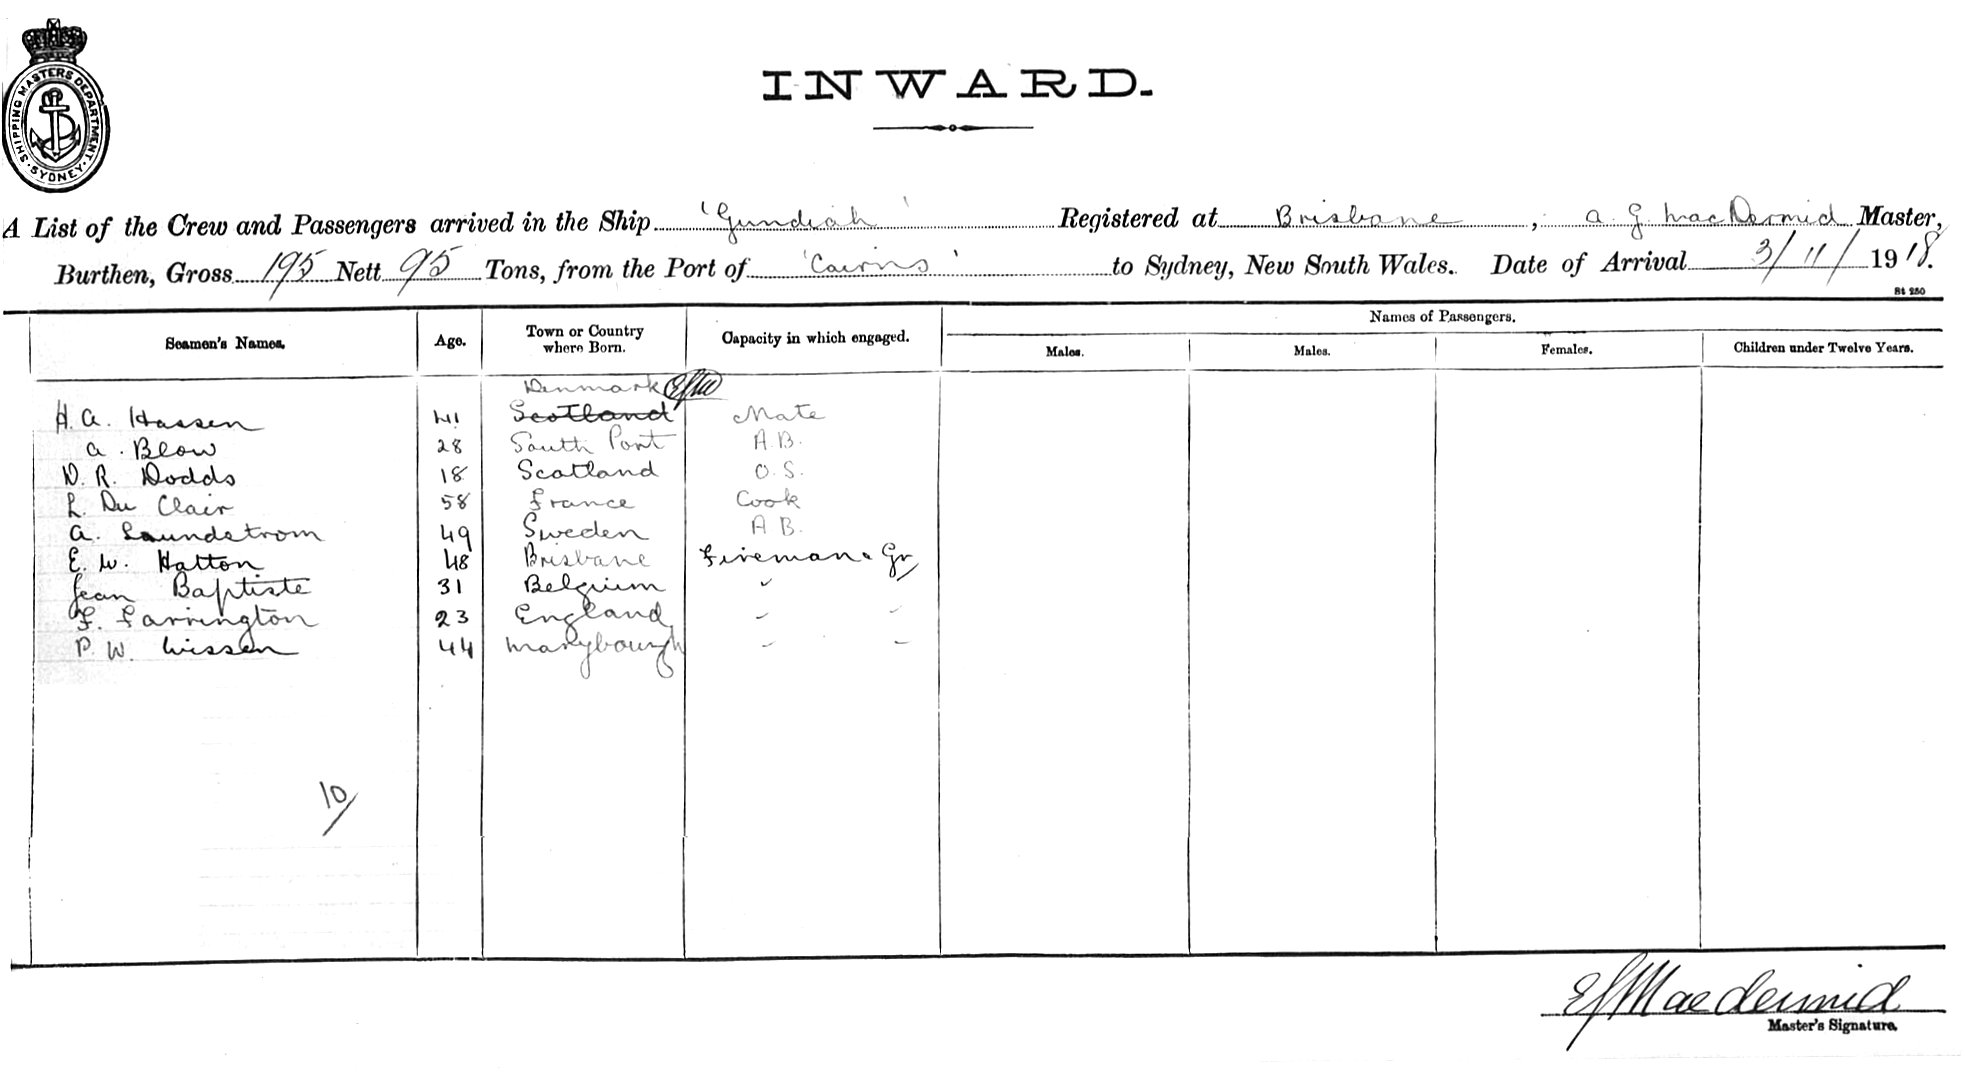 SHIPPING MASTERS DEPARTMENT. SYDNEY.
INWARD.
A List of the Crew and Passengers arrived in the Ship 'Gundiah' Registered at Brisbane, A G MacDermid Master,
Burthen, Gross 195 Nett 95 Tons, from the Port of 'Cairns' to Sydney, New South Wales. Date of Arrival 3/11/1918.
Bt 250
Seamen's Names. Age. Town or Country where Born. Capacity in which engaged. Names of Passengers.
Males. Males. Females. Children under Twelve Years.
Denmark
H. A. Hassen 41 Scotland Mate
A. Blow 28 South Port A.B.
D. R. Dodds 18 Scotland O.S.
L. Du Clair 58 France Cook
A. Laundstrom 49 Sweden A B.
E. W. Hatton 48 Brisbane Fireman & Gr
Jean Baptiste 31 Belgium "
F. Farrington 23 England " "
P. W. Nissen 44 Marybourgh " "
10/
Macdermid
Master's Signature.